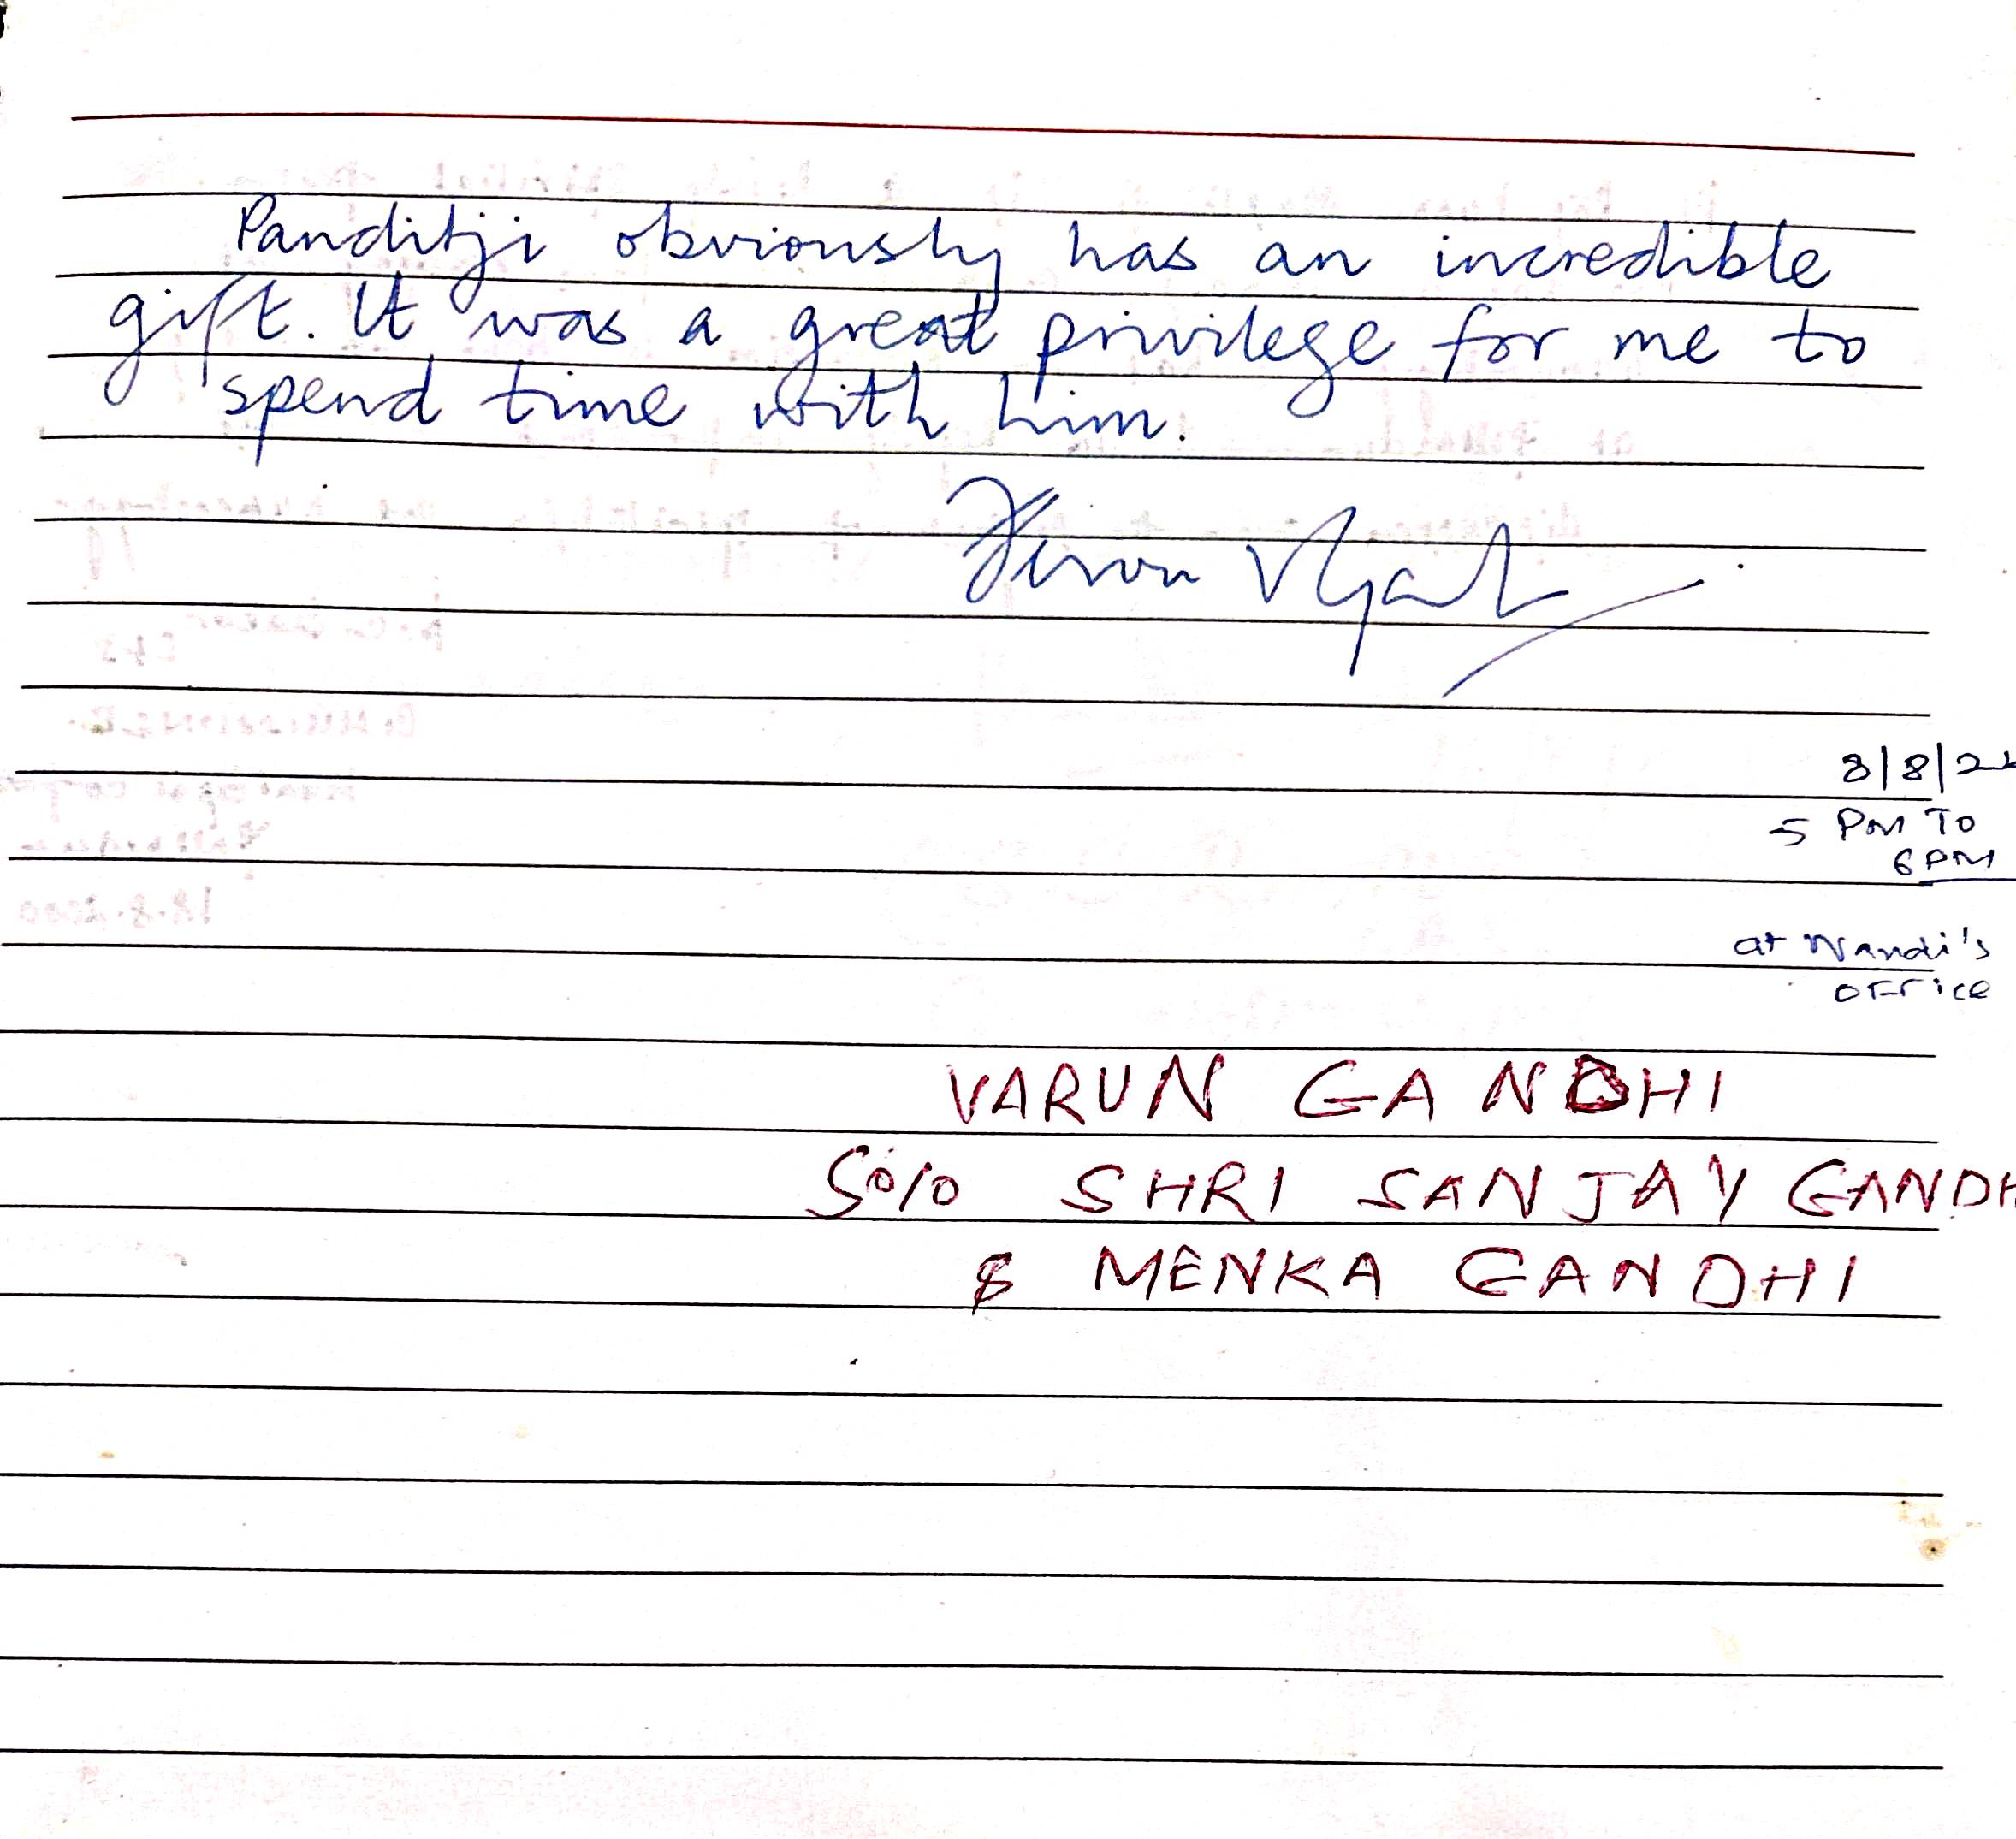 Panditji obviously has an incredible
gift. It was a great privilege for me to
spend time with him.
8/8/2
5 PM TO
6 PM
at Nandi's
OFFice
VARUN GANDHI
So/o SHRI SANJAY GANDH
& MENKA GANDHI